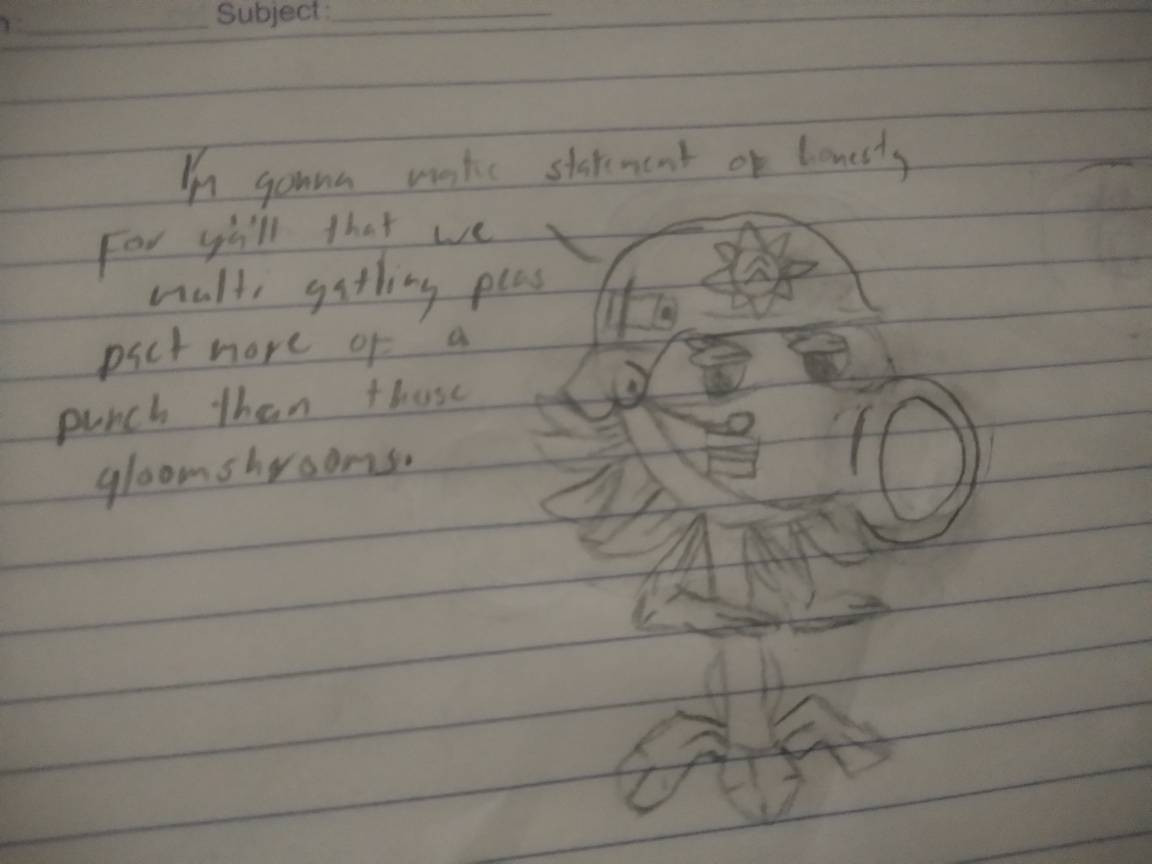 Subject:
I'm gonna matic statement of honesty
For ya'll that we
multi gatling peas
pact more of a
punch than those
gloomshrooms.